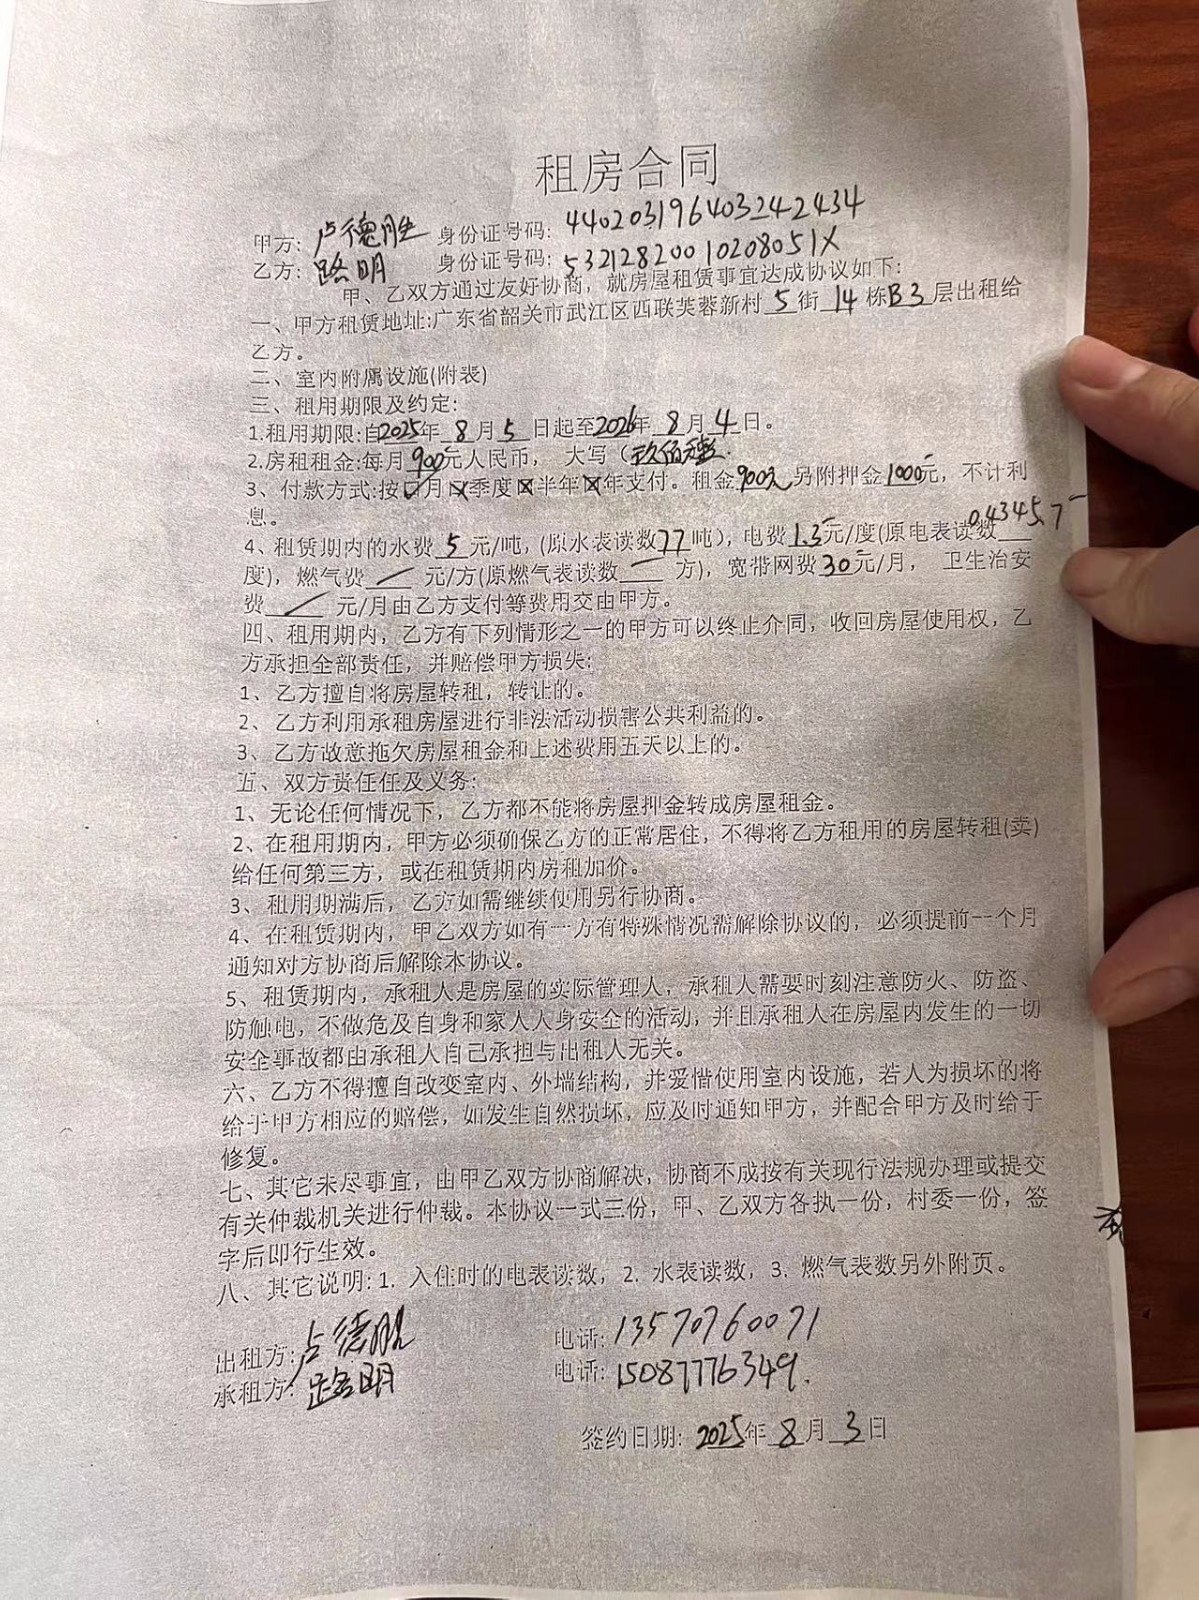 租房合同
甲方: 卢德胜 身份证号码: 440203196403242434
乙方: 路明 身份证号码: 53212820010208051X
甲、乙双方通过友好协商，就房屋租赁事宜达成协议如下:
一、甲方租赁地址:广东省韶关市武江区西联芙蓉新村 5 街 14 栋B3层出租给
乙方。
二、室内附属设施(附表)
三、租用期限及约定:
1.租用期限:自2025年 8 月 5 日起至2026年 8 月 4 日。
2.房租租金:每月900元人民币， 大写（玖佰元整.
3、付款方式:按☑月☒季度☒半年☒年支付。租金900元另附押金1000元，不计利
息。
4、租赁期内的水费 5 元/吨，(原水表读数77吨)，电费1.3元/度(原电表读数04345.7
度)，燃气费 / 元/方(原燃气表读数 — 方)，宽带网费30元/月， 卫生治安
费 / 元/月由乙方支付等费用交由甲方。
四、租用期内，乙方有下列情形之一的甲方可以终止介同，收回房屋使用权，乙
方承担全部责任，并赔偿甲方损失:
1、乙方擅自将房屋转租，转让的。
2、乙方利用承租房屋进行非法活动损害公共利益的。
3、乙方故意拖欠房屋租金和上述费用五天以上的。
五、双方责任任及义务:
1、无论任何情况下，乙方都不能将房屋押金转成房屋租金。
2、在租用期内，甲方必须确保乙方的正常居住，不得将乙方租用的房屋转租(卖)
给任何第三方，或在租赁期内房租加价。
3、租用期满后，乙方如需继续使用另行协商。
4、在租赁期内，甲乙双方如有一方有特殊情况需解除协议的，必须提前一个月
通知对方协商后解除本协议。
5、租赁期内，承租人是房屋的实际管理人，承租人需要时刻注意防火、防盗、
防触电，不做危及自身和家人人身安全的活动，并且承租人在房屋内发生的一切
安全事故都由承租人自己承担与出租人无关。
六、乙方不得擅自改变室内、外墙结构，并爱惜使用室内设施，若人为损坏的将
给于甲方相应的赔偿，如发生自然损坏，应及时通知甲方，并配合甲方及时给于
修复。
七、其它未尽事宜，由甲乙双方协商解决，协商不成按有关现行法规办理或提交
有关仲裁机关进行仲裁。本协议一式三份，甲、乙双方各执一份，村委一份，签
字后即行生效。
八、其它说明: 1. 入住时的电表读数，2. 水表读数，3. 燃气表数另外附页。
出租方: 卢德胜 电话: 13570760071
承租方: 路明 电话: 15087776349.
签约日期: 2025年 8 月 3 日